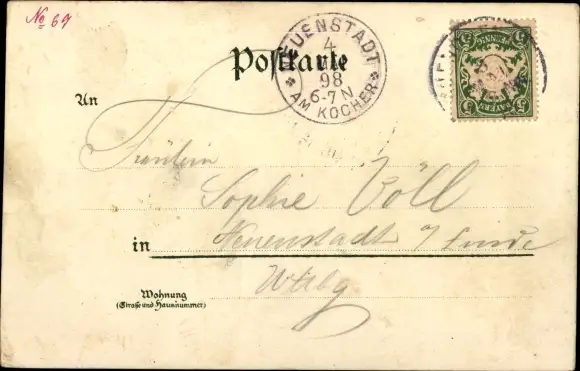 No 69
Postkarte
NEUENSTADT
4
98
6-7 N
* AM KOCHER *
BAYERN
An
Fräulein
Sophie Völl
in Neuenstadt a/ Linde
Wttbg
Wohnung
(Straße und Hausnummer)